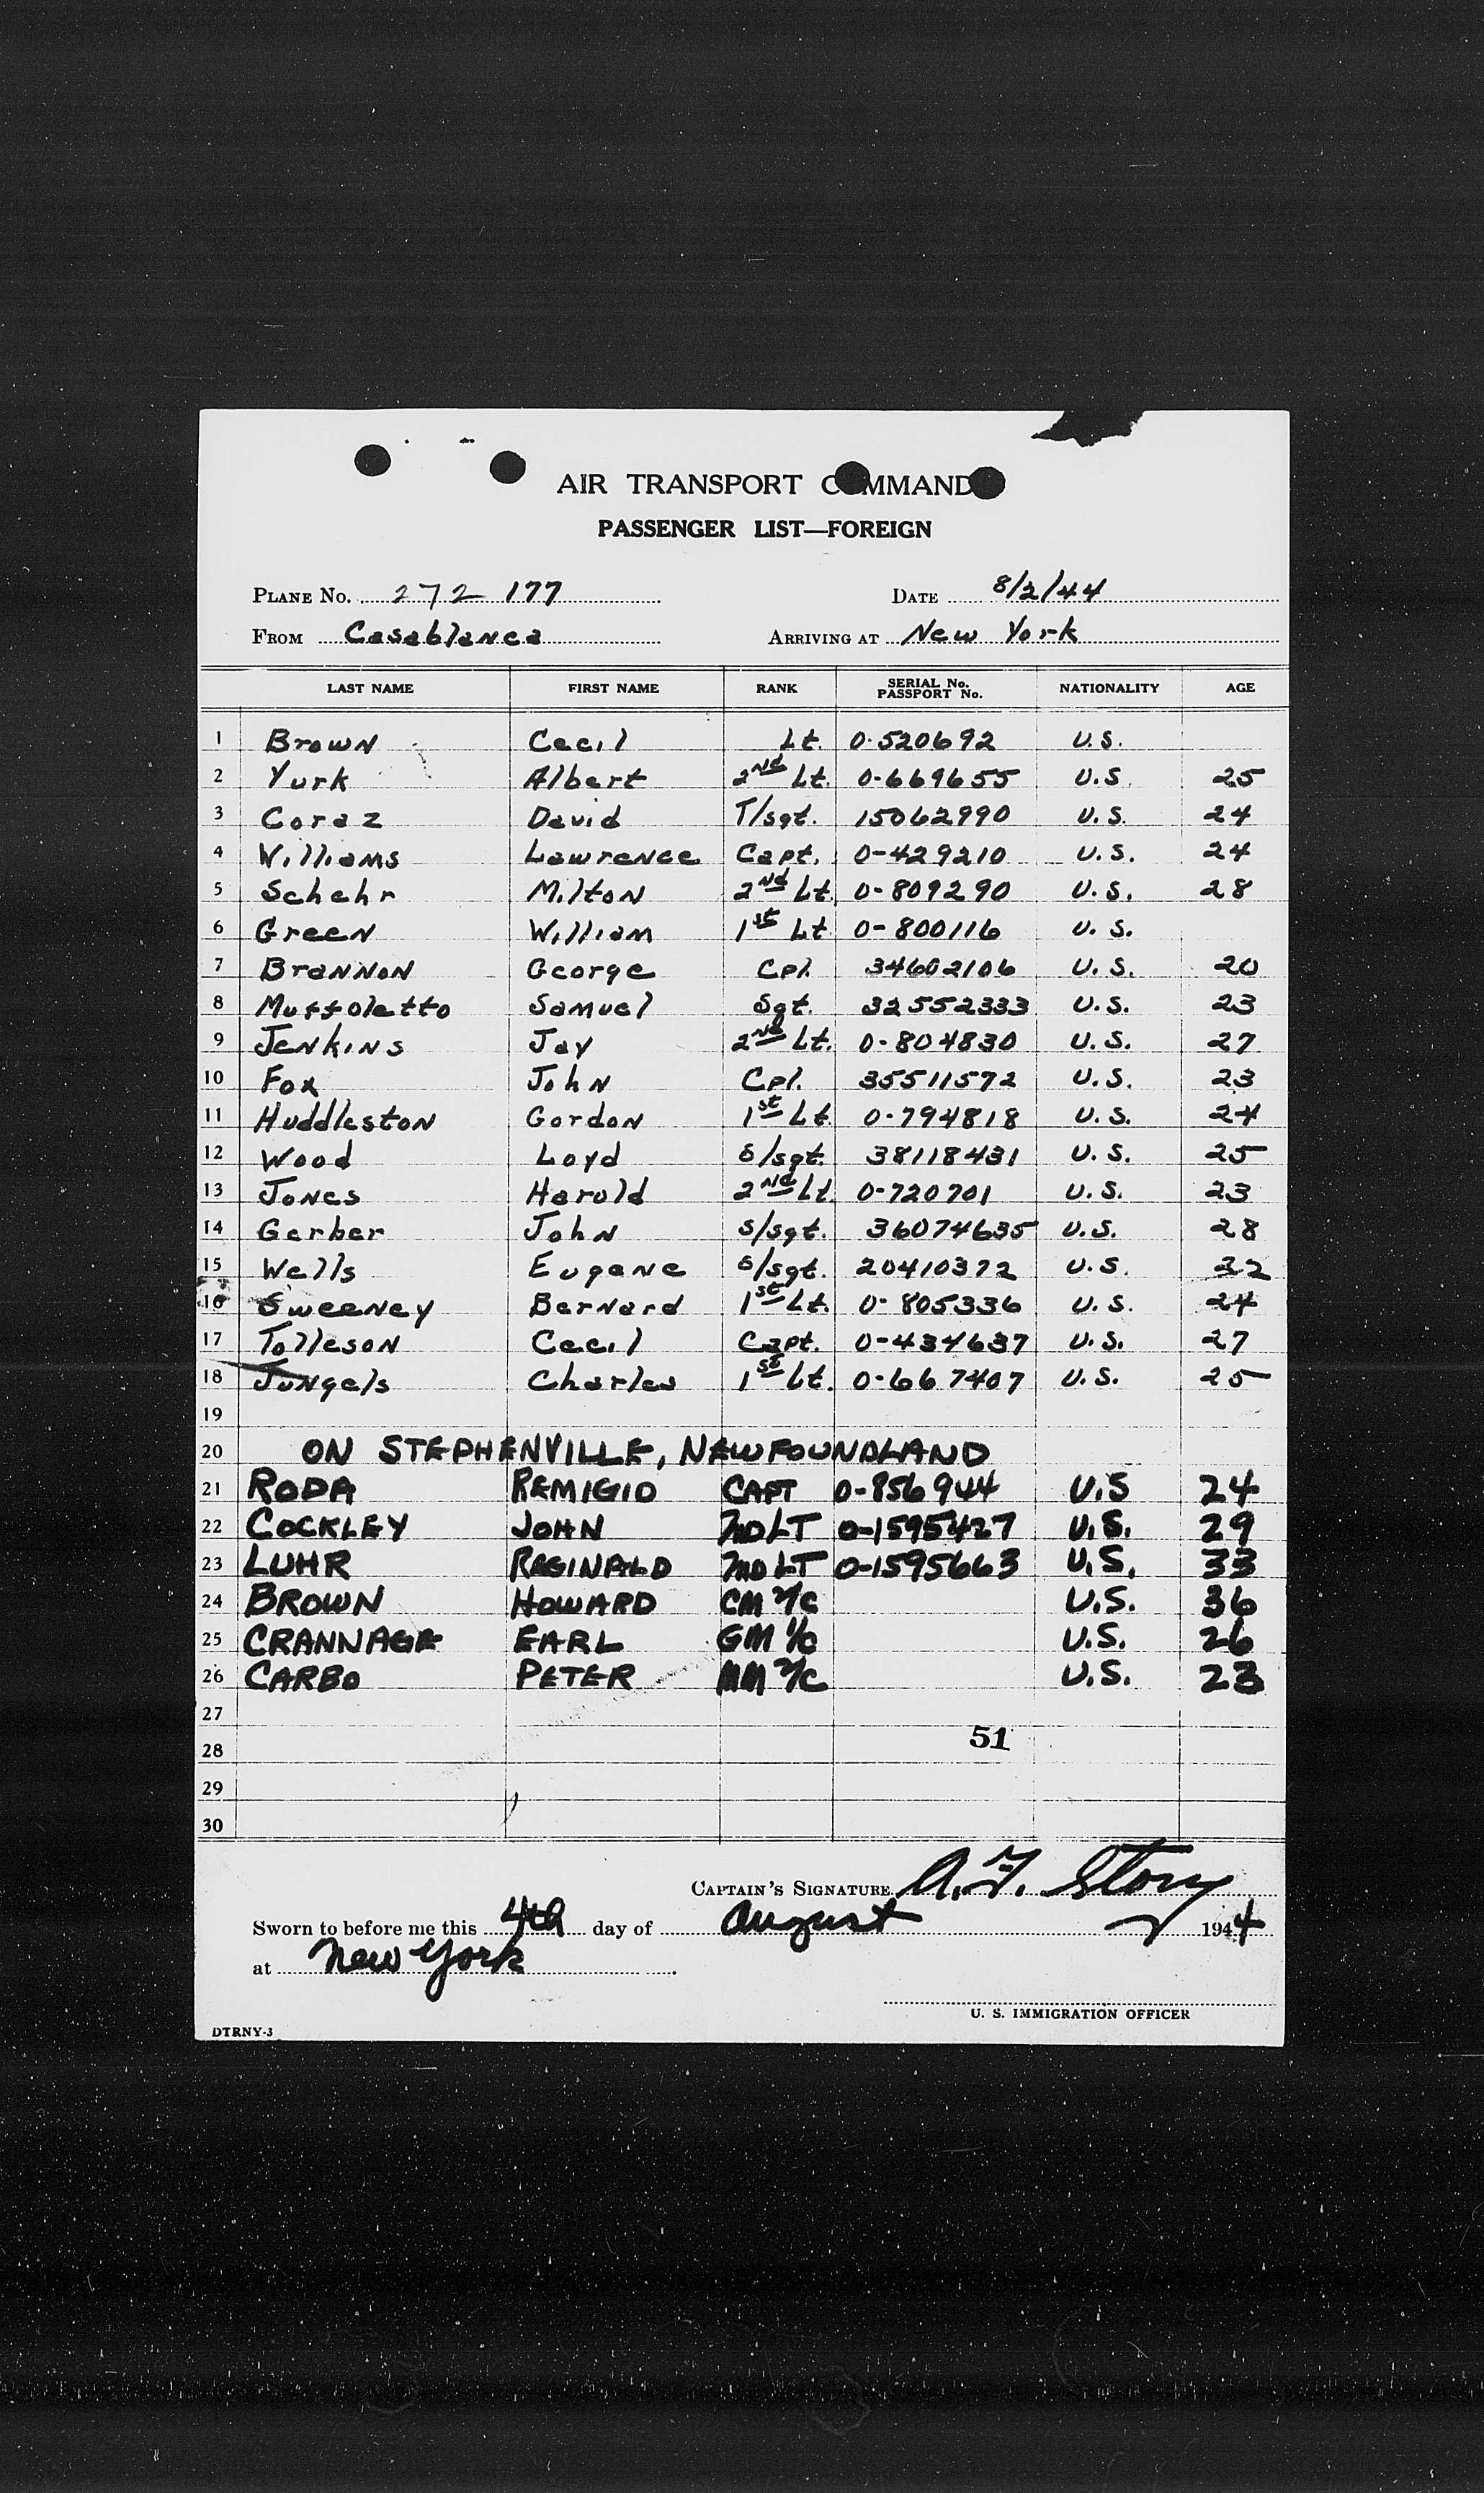 AIR TRANSPORT COMMAND
PASSENGER LIST—FOREIGN
PLANE No. 272 177 DATE 8/2/44
FROM Casablanca ARRIVING AT New York
LAST NAME FIRST NAME RANK SERIAL No. PASSPORT No. NATIONALITY AGE
1 Brown Cecil Lt. 0-520692 U.S.
2 Yurk Albert 2nd Lt. 0-669655 U.S. 25
3 Coraz David T/sgt. 15062990 U.S. 24
4 Williams Lawrence Capt. 0-429210 U.S. 24
5 Schehr Milton 2nd Lt. 0-809290 U.S. 28
6 Green William 1st Lt 0-800116 U.S.
7 Brannon George Cpl. 34602106 U.S. 20
8 Muffoletto Samuel Sgt. 32552333 U.S. 23
9 Jenkins Jay 2nd Lt. 0-804830 U.S. 27
10 Fox John Cpl. 35511572 U.S. 23
11 Huddleston Gordon 1st Lt. 0-794818 U.S. 24
12 Wood Loyd S/sgt. 38118431 U.S. 25
13 Jones Harold 2nd Lt. 0-720701 U.S. 23
14 Gerber John S/sgt. 36074635 U.S. 28
15 Wells Eugene S/sgt. 20410372 U.S. 22
16 Sweeney Bernard 1st Lt. 0-805336 U.S. 24
17 Tolleson Cecil Capt. 0-434637 U.S. 27
18 Jungels Charles 1st Lt. 0-667407 U.S. 25
19
20 ON STEPHENVILLE, NEWFOUNDLAND
21 RODA REMIGIO CAPT 0-856944 U.S 24
22 COCKLEY JOHN 2ND LT 0-1595427 U.S. 29
23 LUHR REGINALD 2ND LT 0-1595663 U.S. 33
24 BROWN HOWARD CM 2/C U.S. 36
25 CRANNAGE EARL GM 1/C U.S. 26
26 CARBO PETER MM 2/C U.S. 23
27
28 51
29
30
CAPTAIN'S SIGNATURE A.F. Story
Sworn to before me this 4th day of August 1944
at New York
U. S. IMMIGRATION OFFICER
DTRNY-3